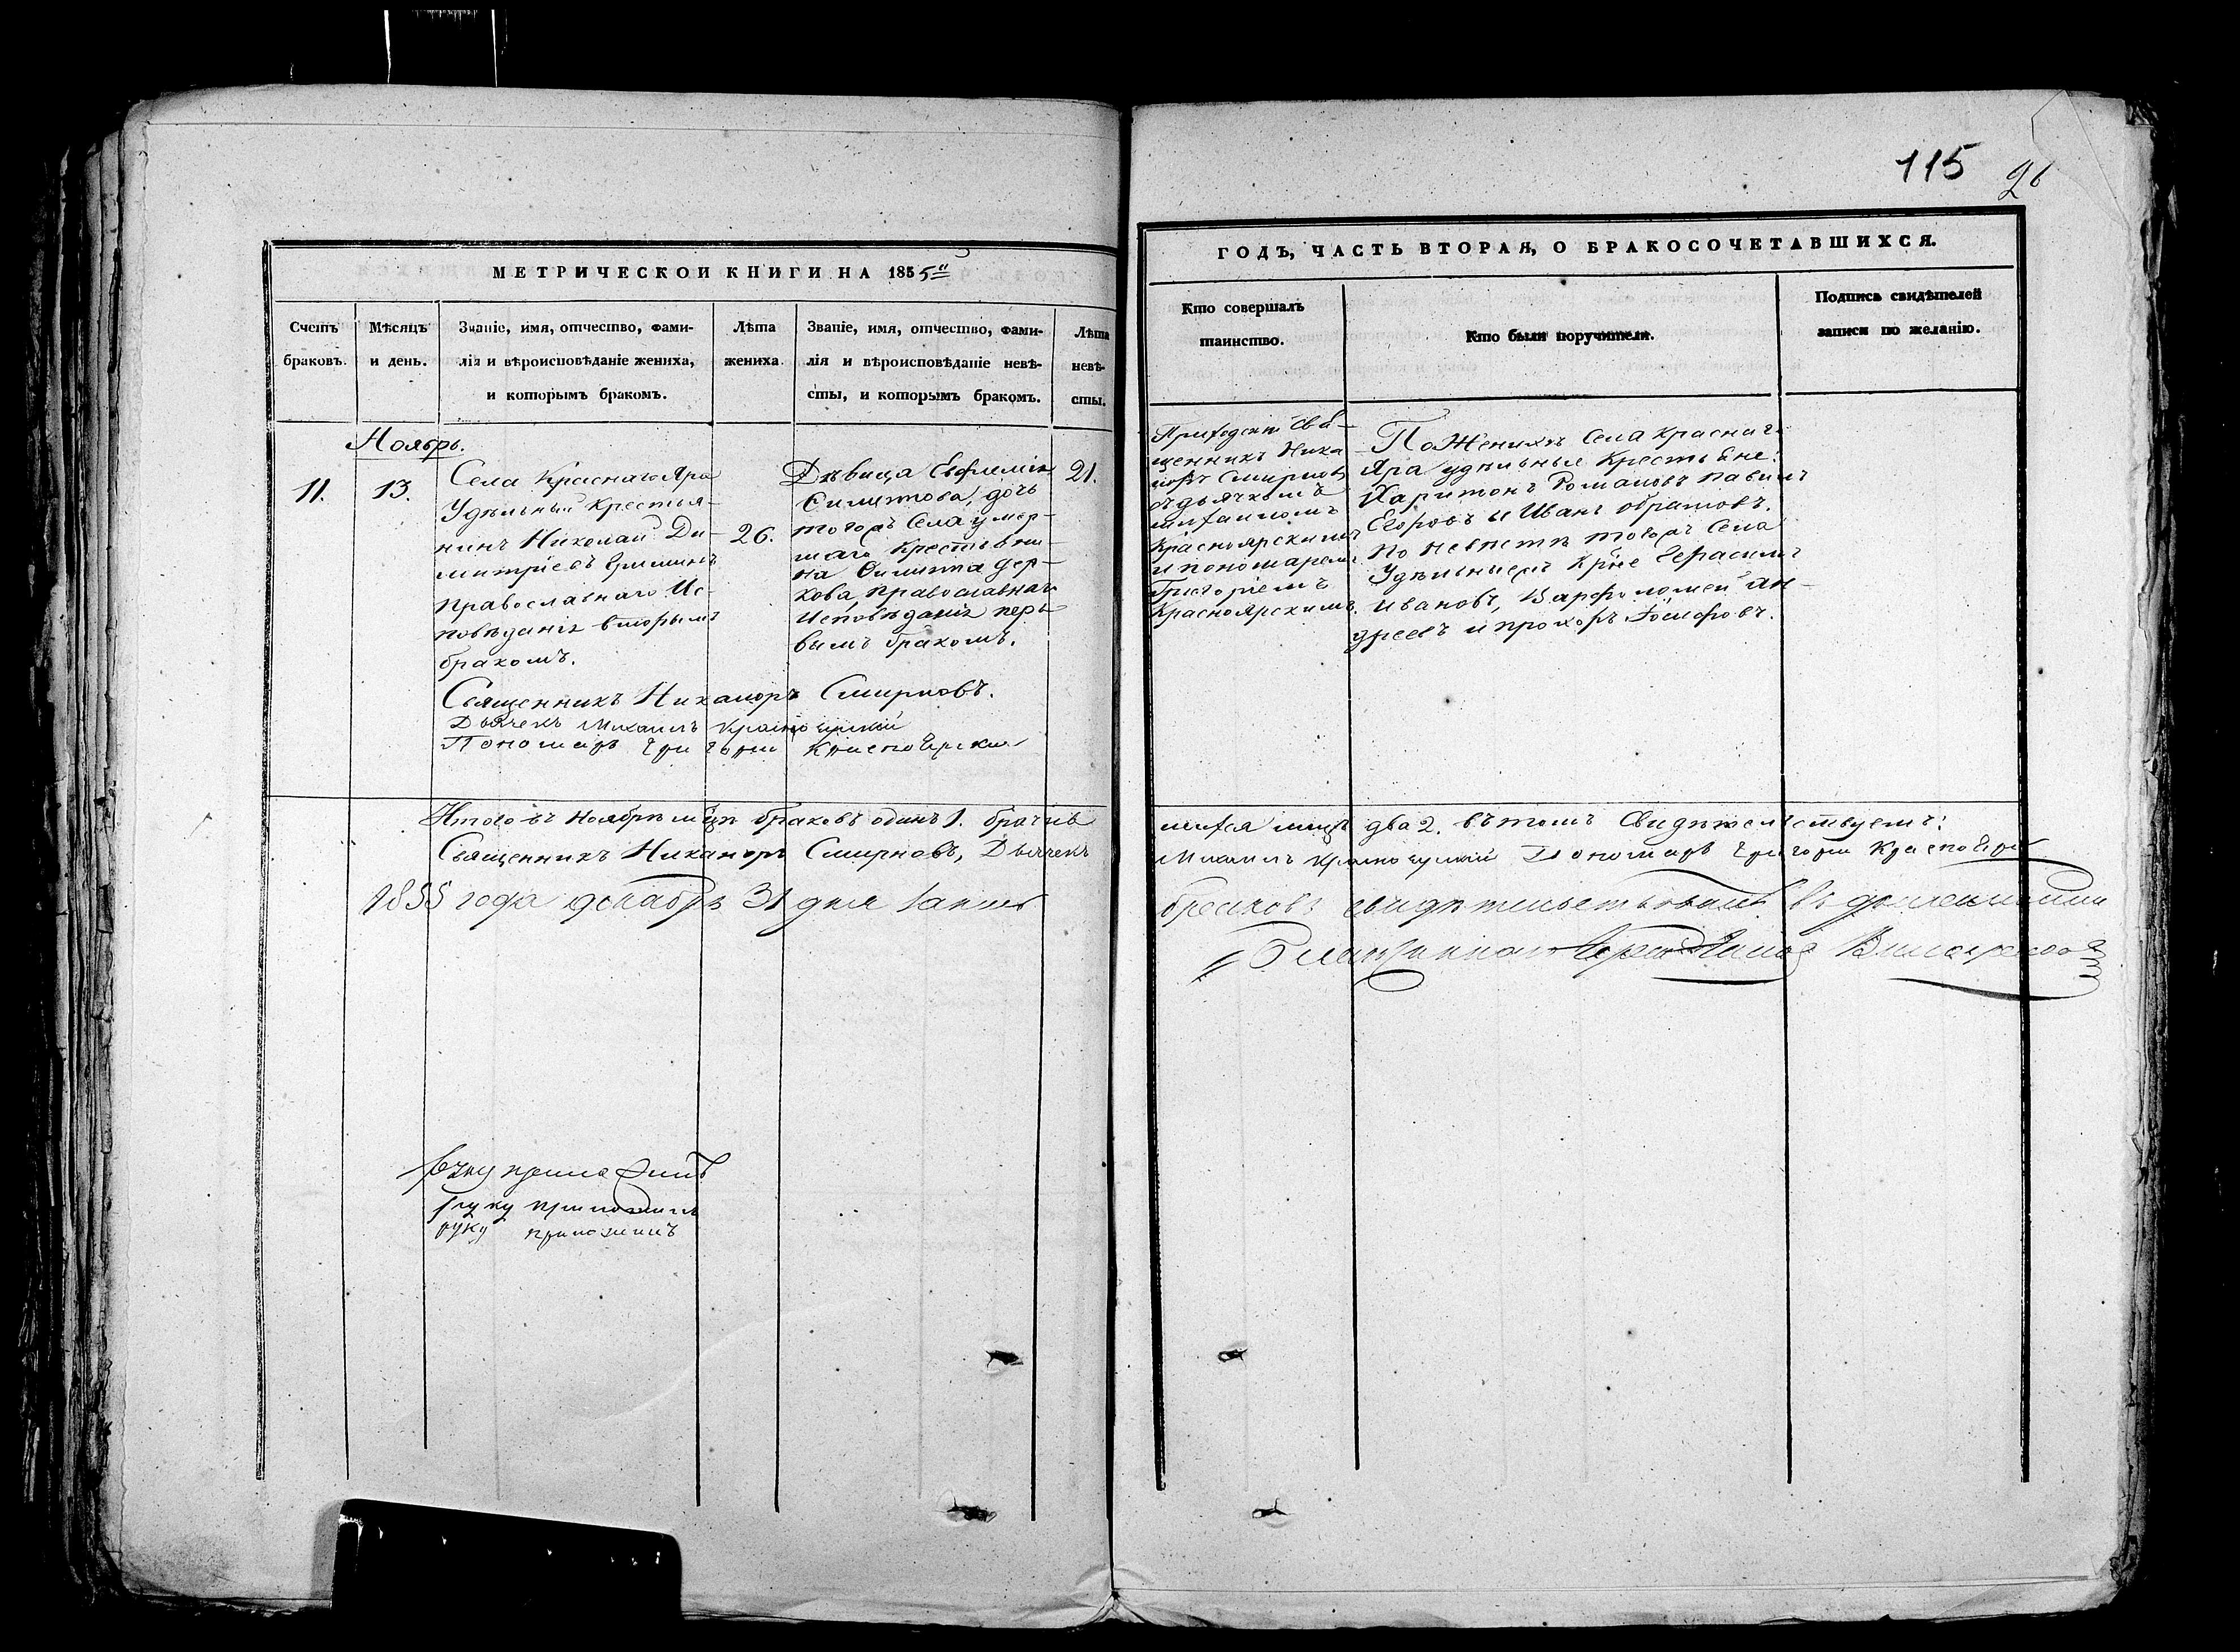 115
26
МЕТРИЧЕСКОЙ КНИГИ НА 1855й
ГОДЪ, ЧАСТЬ ВТОРАЯ, О БРАКОСОЧЕТАВШИХСЯ.
Счетъ
браковъ.
Мѣсяцъ
и день.
Званіе, имя, отчество, фами-
лія и вѣроисповѣданіе жениха,
и которымъ бракомъ.
Лѣта
жениха.
Званіе, имя, отчество, фами-
лія и вѣроисповѣданіе невѣ-
сты, и которымъ бракомъ.
Лѣта
невѣ-
сты.
Кто совершалъ
таинство.
Кто были поручители.
Подпись свидѣтелей
записи по желанію.
Ноябрь.
11.
13.
Села Краснаго Яра
Удѣльный Крестья-
нинъ Николай Ди-
митріевъ
Православнаго Ис-
повѣданія вторымъ
бракомъ.
26.
Дѣвица Евфимія
дочь
тогожъ Села умер-
шаго Крестьяни-
на
Православнаго
Исповѣданія пер-
вымъ бракомъ.
21.
Приходскій Свя-
щенникъ Ника-
норъ Смирновъ
съ дьячкомъ
Михаиломъ
Красноярскимъ
и пономаремъ
Григоріемъ
Красноярскимъ.
По Женихѣ Села Краснаго
Яра удѣльные Крестьяне:
Харитонъ Романовъ Павелъ
Егоровъ и Иванъ
По невѣстѣ тогожъ Села
Удѣльныежъ Кр͠не Герасимъ
Ивановъ, Варфоломей Ан-
дреевъ и Прохоръ
Священникъ Никаноръ Смирновъ.
Дьячекъ Михаилъ Красноярскій
Пономарь Григорій Красноярскій
Итого въ Ноябрѣ м͠цѣ браковъ одинъ 1. брачив
шихся лицъ два 2. въ томъ Свидѣтельствуемъ:
Священникъ Никаноръ Смирновъ, Дьячекъ
Михаилъ Красноярскій Пономарь Григорій Красноярскій
1855 года декабря 31 дня
браковъ свидѣтельствовалъ
Благочинный
руку приложилъ
руку приложилъ
руку приложилъ